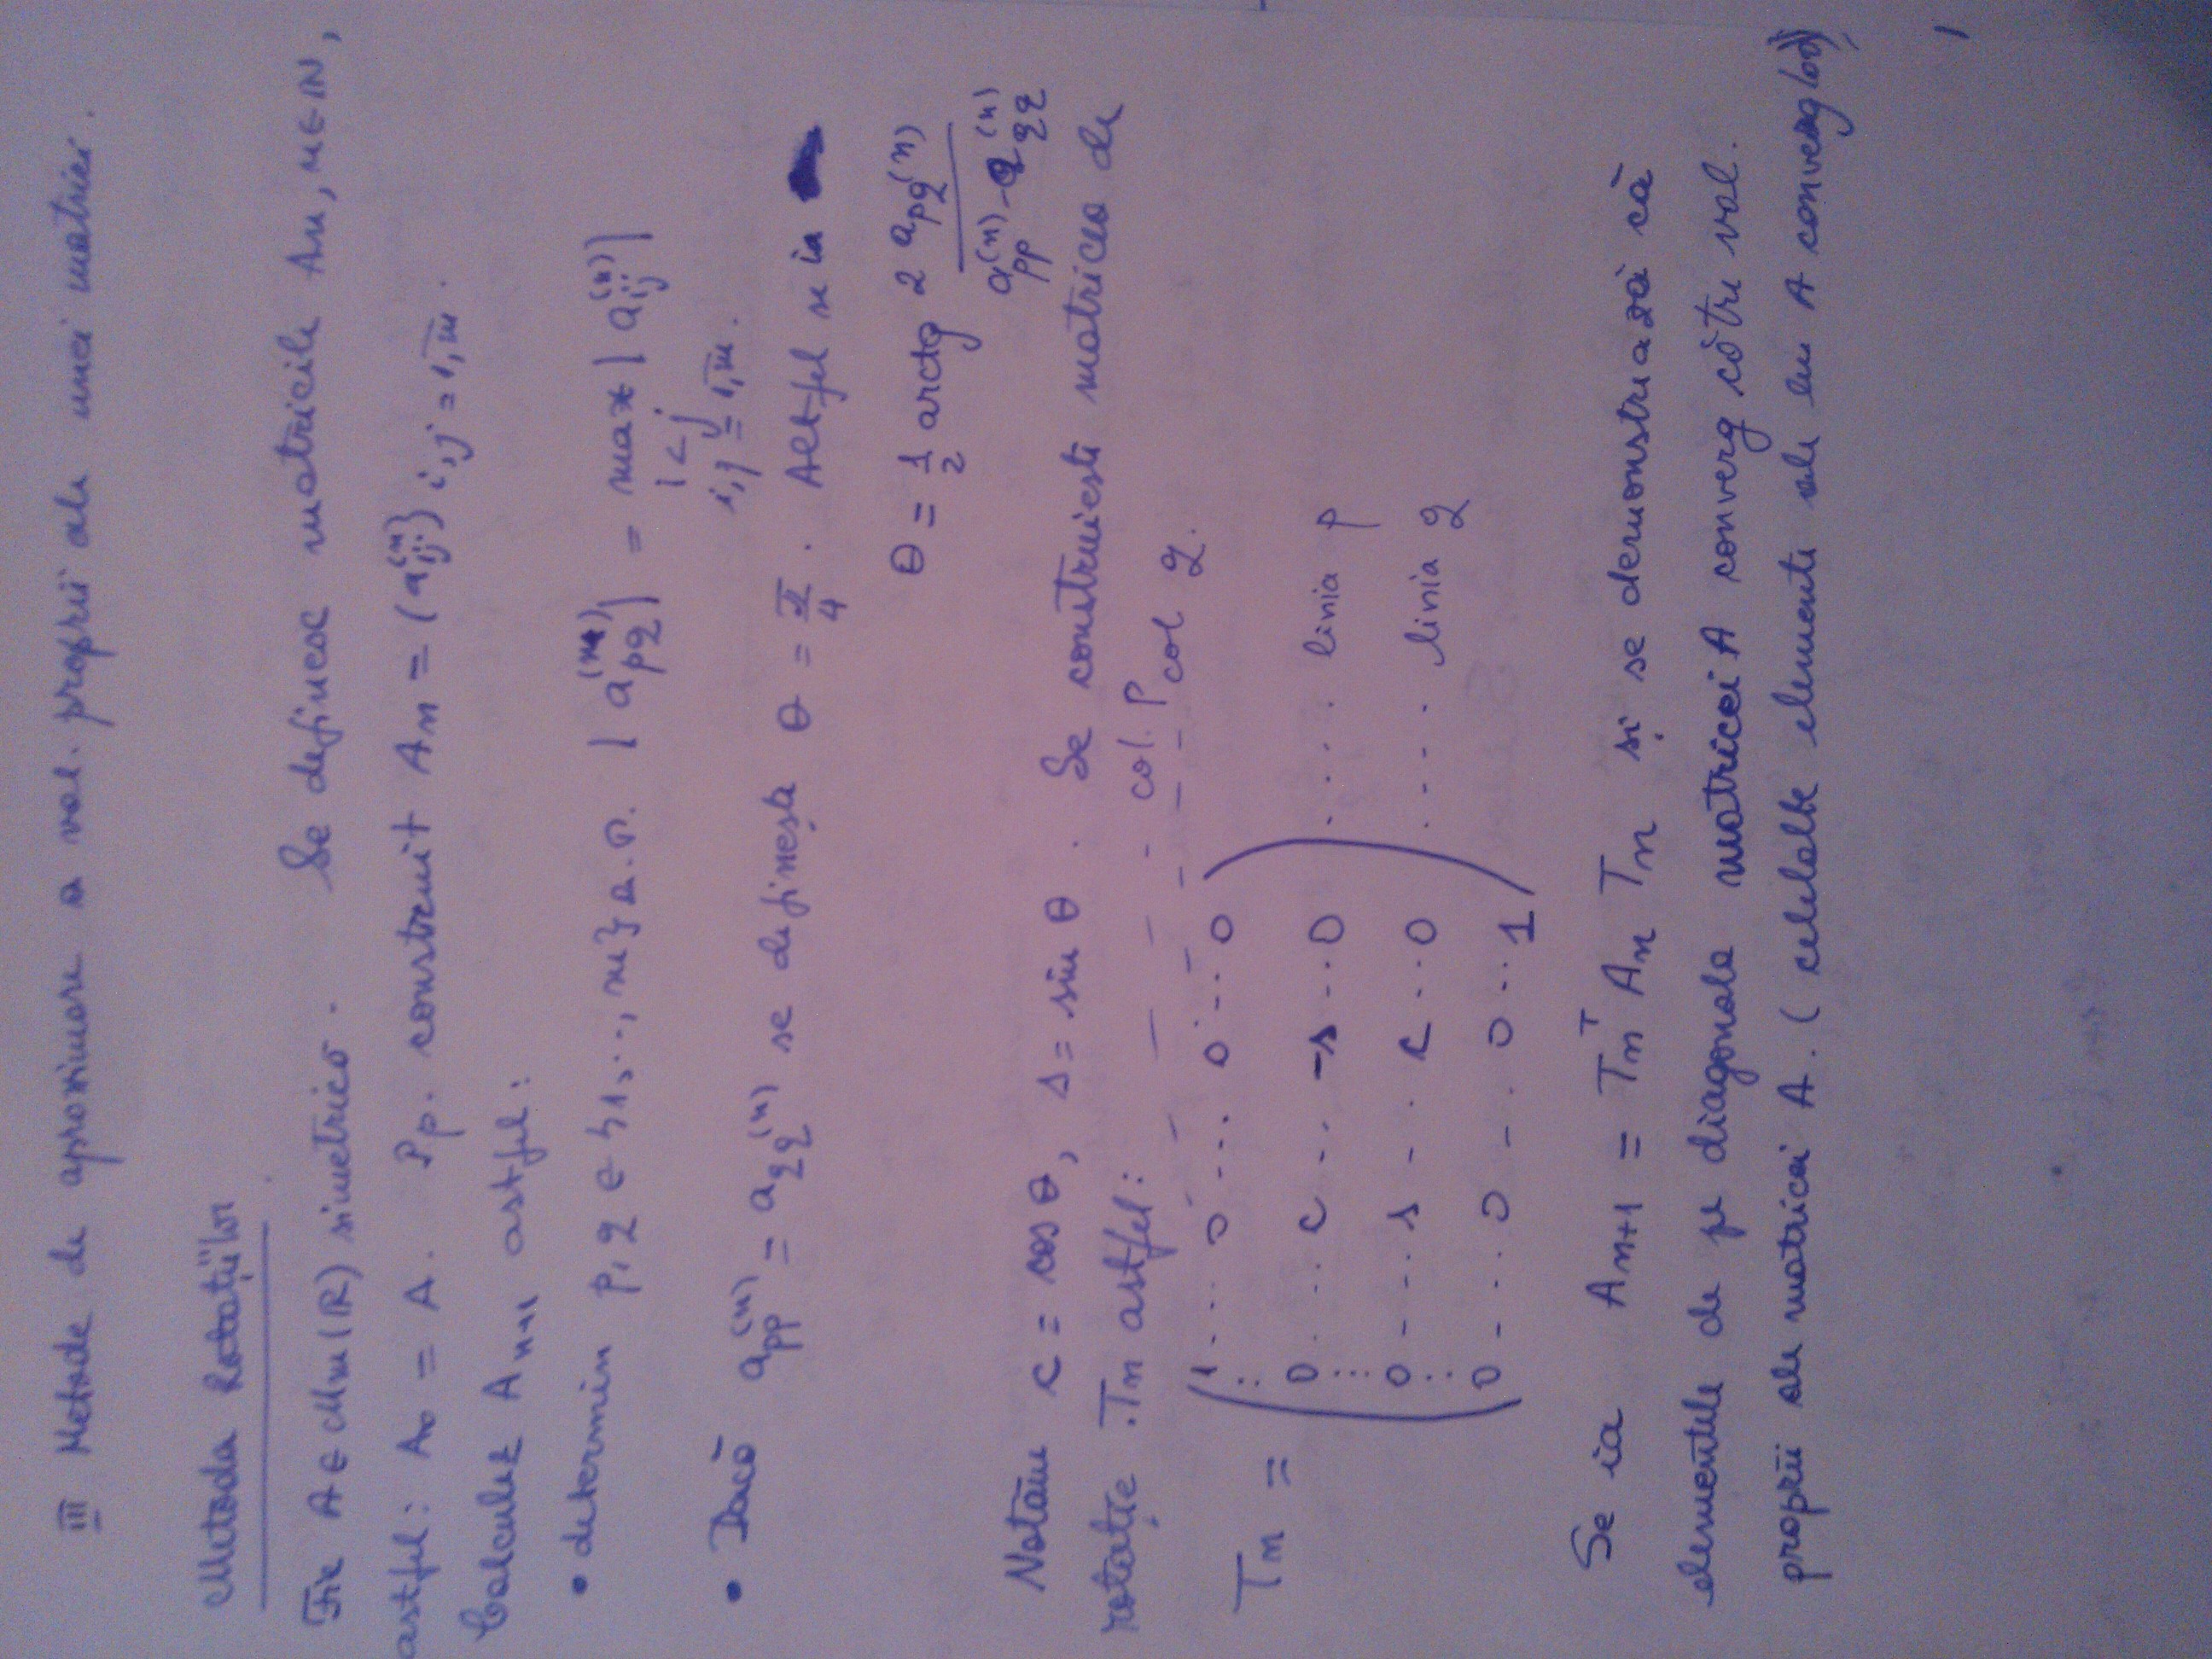 III Metode de aproximare a val. proprii ale unei matrici.
Metoda Rotațiilor
Fie A ∈ Mm(R) simetrică. Se definesc matricile An, n ∈ N,
astfel: A0 = A. Pp. construit An = (aij^(n)) i,j = 1,m.
Calculez An+1 astfel:
• determin p, q ∈ {1,..., m} a.î. |apq^(n)| = max |aij^(n)|
i < j
i,j = 1,m.
• Dacă app^(n) = aqq^(n) se definește θ = π/4. Altfel se ia
θ = 1/2 arctg 2 apq^(n) / app^(n) - aqq^(n)
Notăm c = cos θ, s = sin θ. Se construiești matricea de
rotație Tn astfel:
col. p
col q.
Tn =
( 1 ... 0 ... 0 ... 0 )
( 0 ... c ... -s ... 0 ) .... linia p
( 0 ... s ... c ... 0 ) .... linia q
( 0 ... 0 ... 0 ... 1 )
Se ia An+1 = Tn^T An Tn și se demonstrează că
elementele de pe diagonala matricei A converg către val.
proprii ale matricei A. (celelalte elemente ale lui A converg la 0)
1